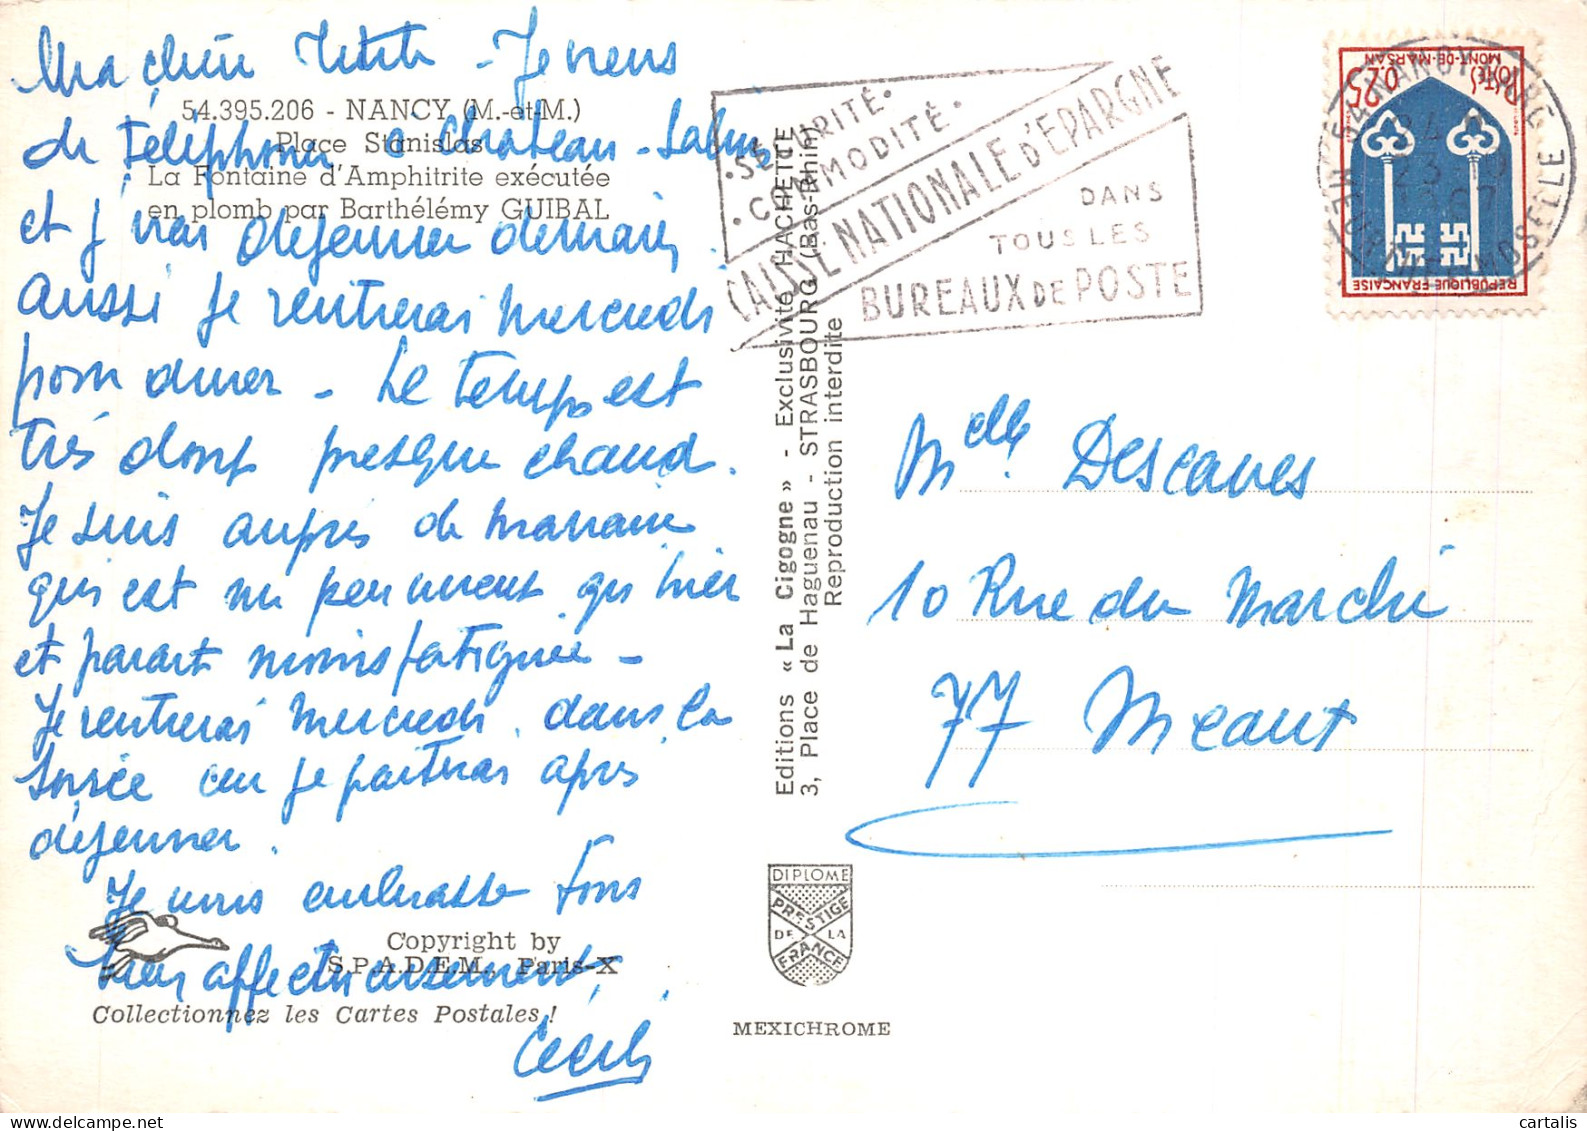 Ma chère Titite - Je viens
de téléphoner à Château-Salins
et j'irai déjeuner demain,
aussi je rentrerai mercredi
pour diner - Le temps est
très doux presque chaud.
Je suis auprès de marraine
qui est un peu mieux qu'hier
et parait moins fatiguée -
Je rentrerai mercredi dans la
soirée car je partirai après
déjeuner.
Je vous embrasse tous
bien affectueusement.
Cécile
54.395.206 - NANCY (M.-et-M.)
Place Stanislas
La Fontaine d'Amphitrite exécutée
en plomb par Barthélémy GUIBAL
Copyright by
S.P.A.D.E.M. Paris-X
Collectionnez les Cartes Postales !
Editions « La Cigogne » - Exclusivité HACHETTE
3, Place de Haguenau - STRASBOURG (Bas-Rhin)
Reproduction interdite
DIPLOME
PRESTIGE
DE LA
FRANCE
MEXICHROME
·SÉCURITÉ·
·COMMODITÉ·
CAISSE NATIONALE D'EPARGNE
DANS
TOUS LES
BUREAUX DE POSTE
0,25
POSTES
MONT-DE-MARSAN
REPUBLIQUE FRANÇAISE
54 NANCY GARE
MEURTHE-ET-MOSELLE
Melle Descaves
10 Rue du Marché
77 Meaux
cartalis